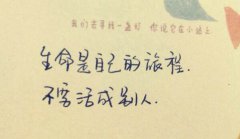 我们去寻找一盏灯 你说它在小路上
生命是自己的旅程.
不要活成别人.